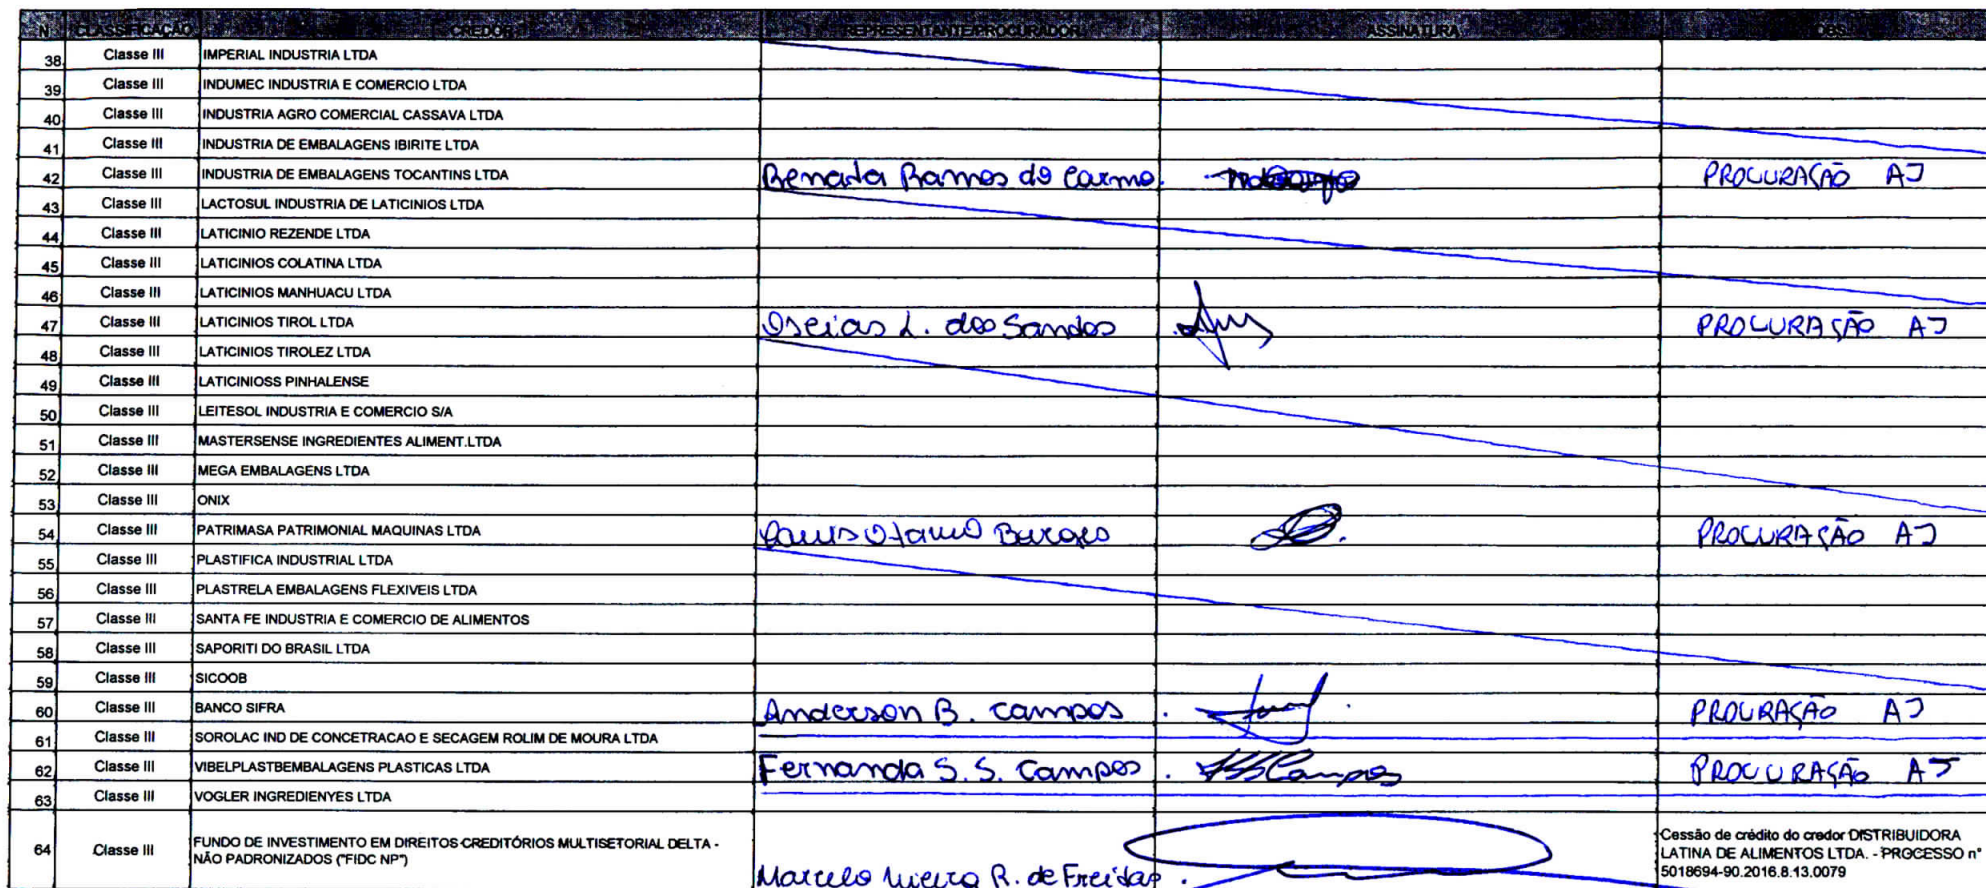 N CLASSIFICAÇÃO CREDOR REPRESENTANTE/PROCURADOR ASSINATURA OBS
38 Classe III IMPERIAL INDUSTRIA LTDA
39 Classe III INDUMEC INDUSTRIA E COMERCIO LTDA
40 Classe III INDUSTRIA AGRO COMERCIAL CASSAVA LTDA
41 Classe III INDUSTRIA DE EMBALAGENS IBIRITE LTDA
42 Classe III INDUSTRIA DE EMBALAGENS TOCANTINS LTDA Renata Ramos do Carmo. PROCURAÇÃO AJ
43 Classe III LACTOSUL INDUSTRIA DE LATICINIOS LTDA
44 Classe III LATICINIO REZENDE LTDA
45 Classe III LATICINIOS COLATINA LTDA
46 Classe III LATICINIOS MANHUACU LTDA
47 Classe III LATICINIOS TIROL LTDA Oseias L. dos Santos PROCURAÇÃO AJ
48 Classe III LATICINIOS TIROLEZ LTDA
49 Classe III LATICINIOSS PINHALENSE
50 Classe III LEITESOL INDUSTRIA E COMERCIO S/A
51 Classe III MASTERSENSE INGREDIENTES ALIMENT.LTDA
52 Classe III MEGA EMBALAGENS LTDA
53 Classe III ONIX
54 Classe III PATRIMASA PATRIMONIAL MAQUINAS LTDA PROCURAÇÃO AJ
55 Classe III PLASTIFICA INDUSTRIAL LTDA
56 Classe III PLASTRELA EMBALAGENS FLEXIVEIS LTDA
57 Classe III SANTA FE INDUSTRIA E COMERCIO DE ALIMENTOS
58 Classe III SAPORITI DO BRASIL LTDA
59 Classe III SICOOB
60 Classe III BANCO SIFRA Anderson B. Campos. PROCURAÇÃO AJ
61 Classe III SOROLAC IND DE CONCETRACAO E SECAGEM ROLIM DE MOURA LTDA
62 Classe III VIBELPLASTBEMBALAGENS PLASTICAS LTDA Fernanda S. S. Campos. PROCURAÇÃO AJ
63 Classe III VOGLER INGREDIENYES LTDA
64 Classe III FUNDO DE INVESTIMENTO EM DIREITOS CREDITÓRIOS MULTISETORIAL DELTA -
NÃO PADRONIZADOS ("FIDC NP")
Marcelo Vieira R. de Freitas.
Cessão de crédito do credor DISTRIBUIDORA
LATINA DE ALIMENTOS LTDA. - PROCESSO nº
5018694-90.2016.8.13.0079